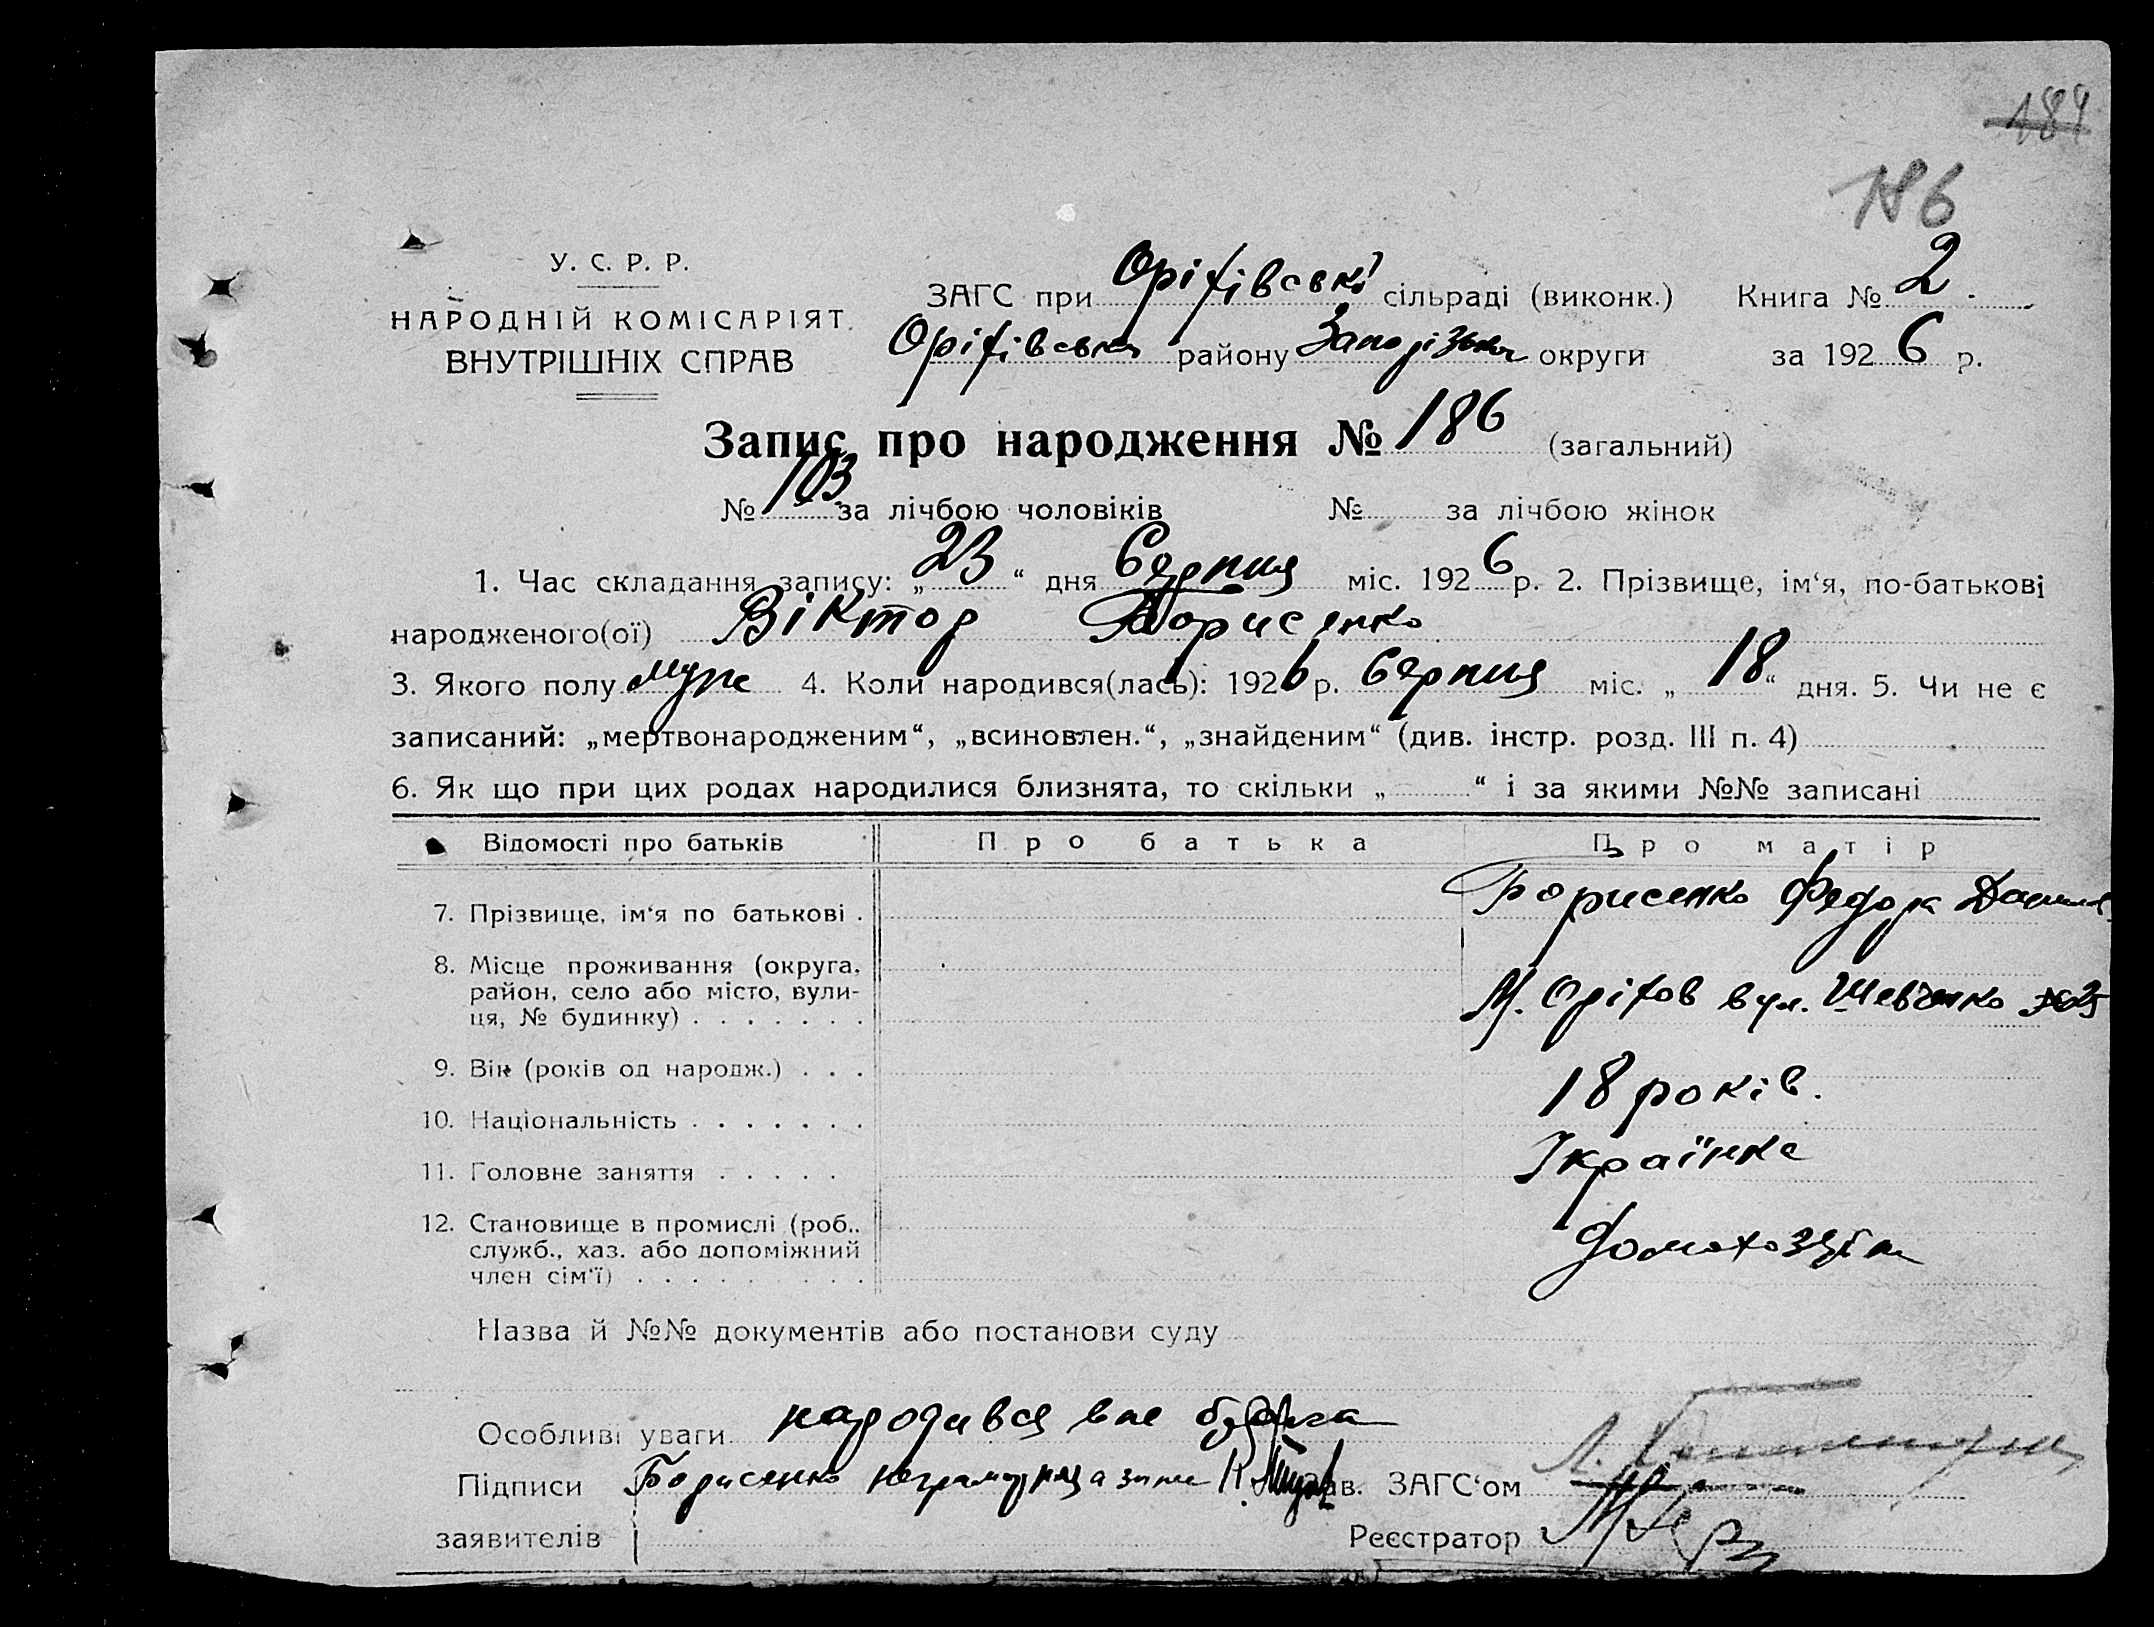 184
186
У. С. Р. Р.
НАРОДНІЙ КОМІСАРІЯТ
ВНУТРІШНІХ СПРАВ
ЗАГС при Оріхівські сільраді (виконк.) Книга № 2
Оріхівська району Запорізька округи за 1926 р.
Запис про народження № 186 (загальний)
№ 103 за лічбою чоловіків № за лічбою жінок
1. Час складання запису: „23“ дня Серпня міс. 1926 р. 2. Прізвище, ім‘я, по-батькові
народженого(ої) Віктор Борисенко
3. Якого полу муж 4. Коли народився(лась): 1926 р. Серпня міс. „18“ дня. 5. Чи не є
записаний: „мертвонародженим“, „всиновлен.“, „знайденим“ (див. інстр. розд. III п. 4)
6. Як що при цих родах народилися близнята, то скільки „ “ і за якими №№ записані
Відомості про батьків Про батька Про матір
7. Прізвище, ім‘я по батькові . Борисенко Федора
8. Місце проживання (округа, район, село або місто, вулиця, № будинку) . . . . . . . М. Оріхов вул. Шевченко
9. Вік (років од народж.) . . . 18 років.
10. Національність . . . . . . . Українка
11. Головне заняття . . . . .
12. Становище в промислі (роб., служб., хаз. або допоміжний член сім‘ї) . . . . . . . . . домохозяїн
Назва й №№ документів або постанови суду
Особливі уваги народився вне брака
Підписи Борисенко неграмотная а за нее К. Зав. ЗАГС‘ом
заявителів Реєстратор